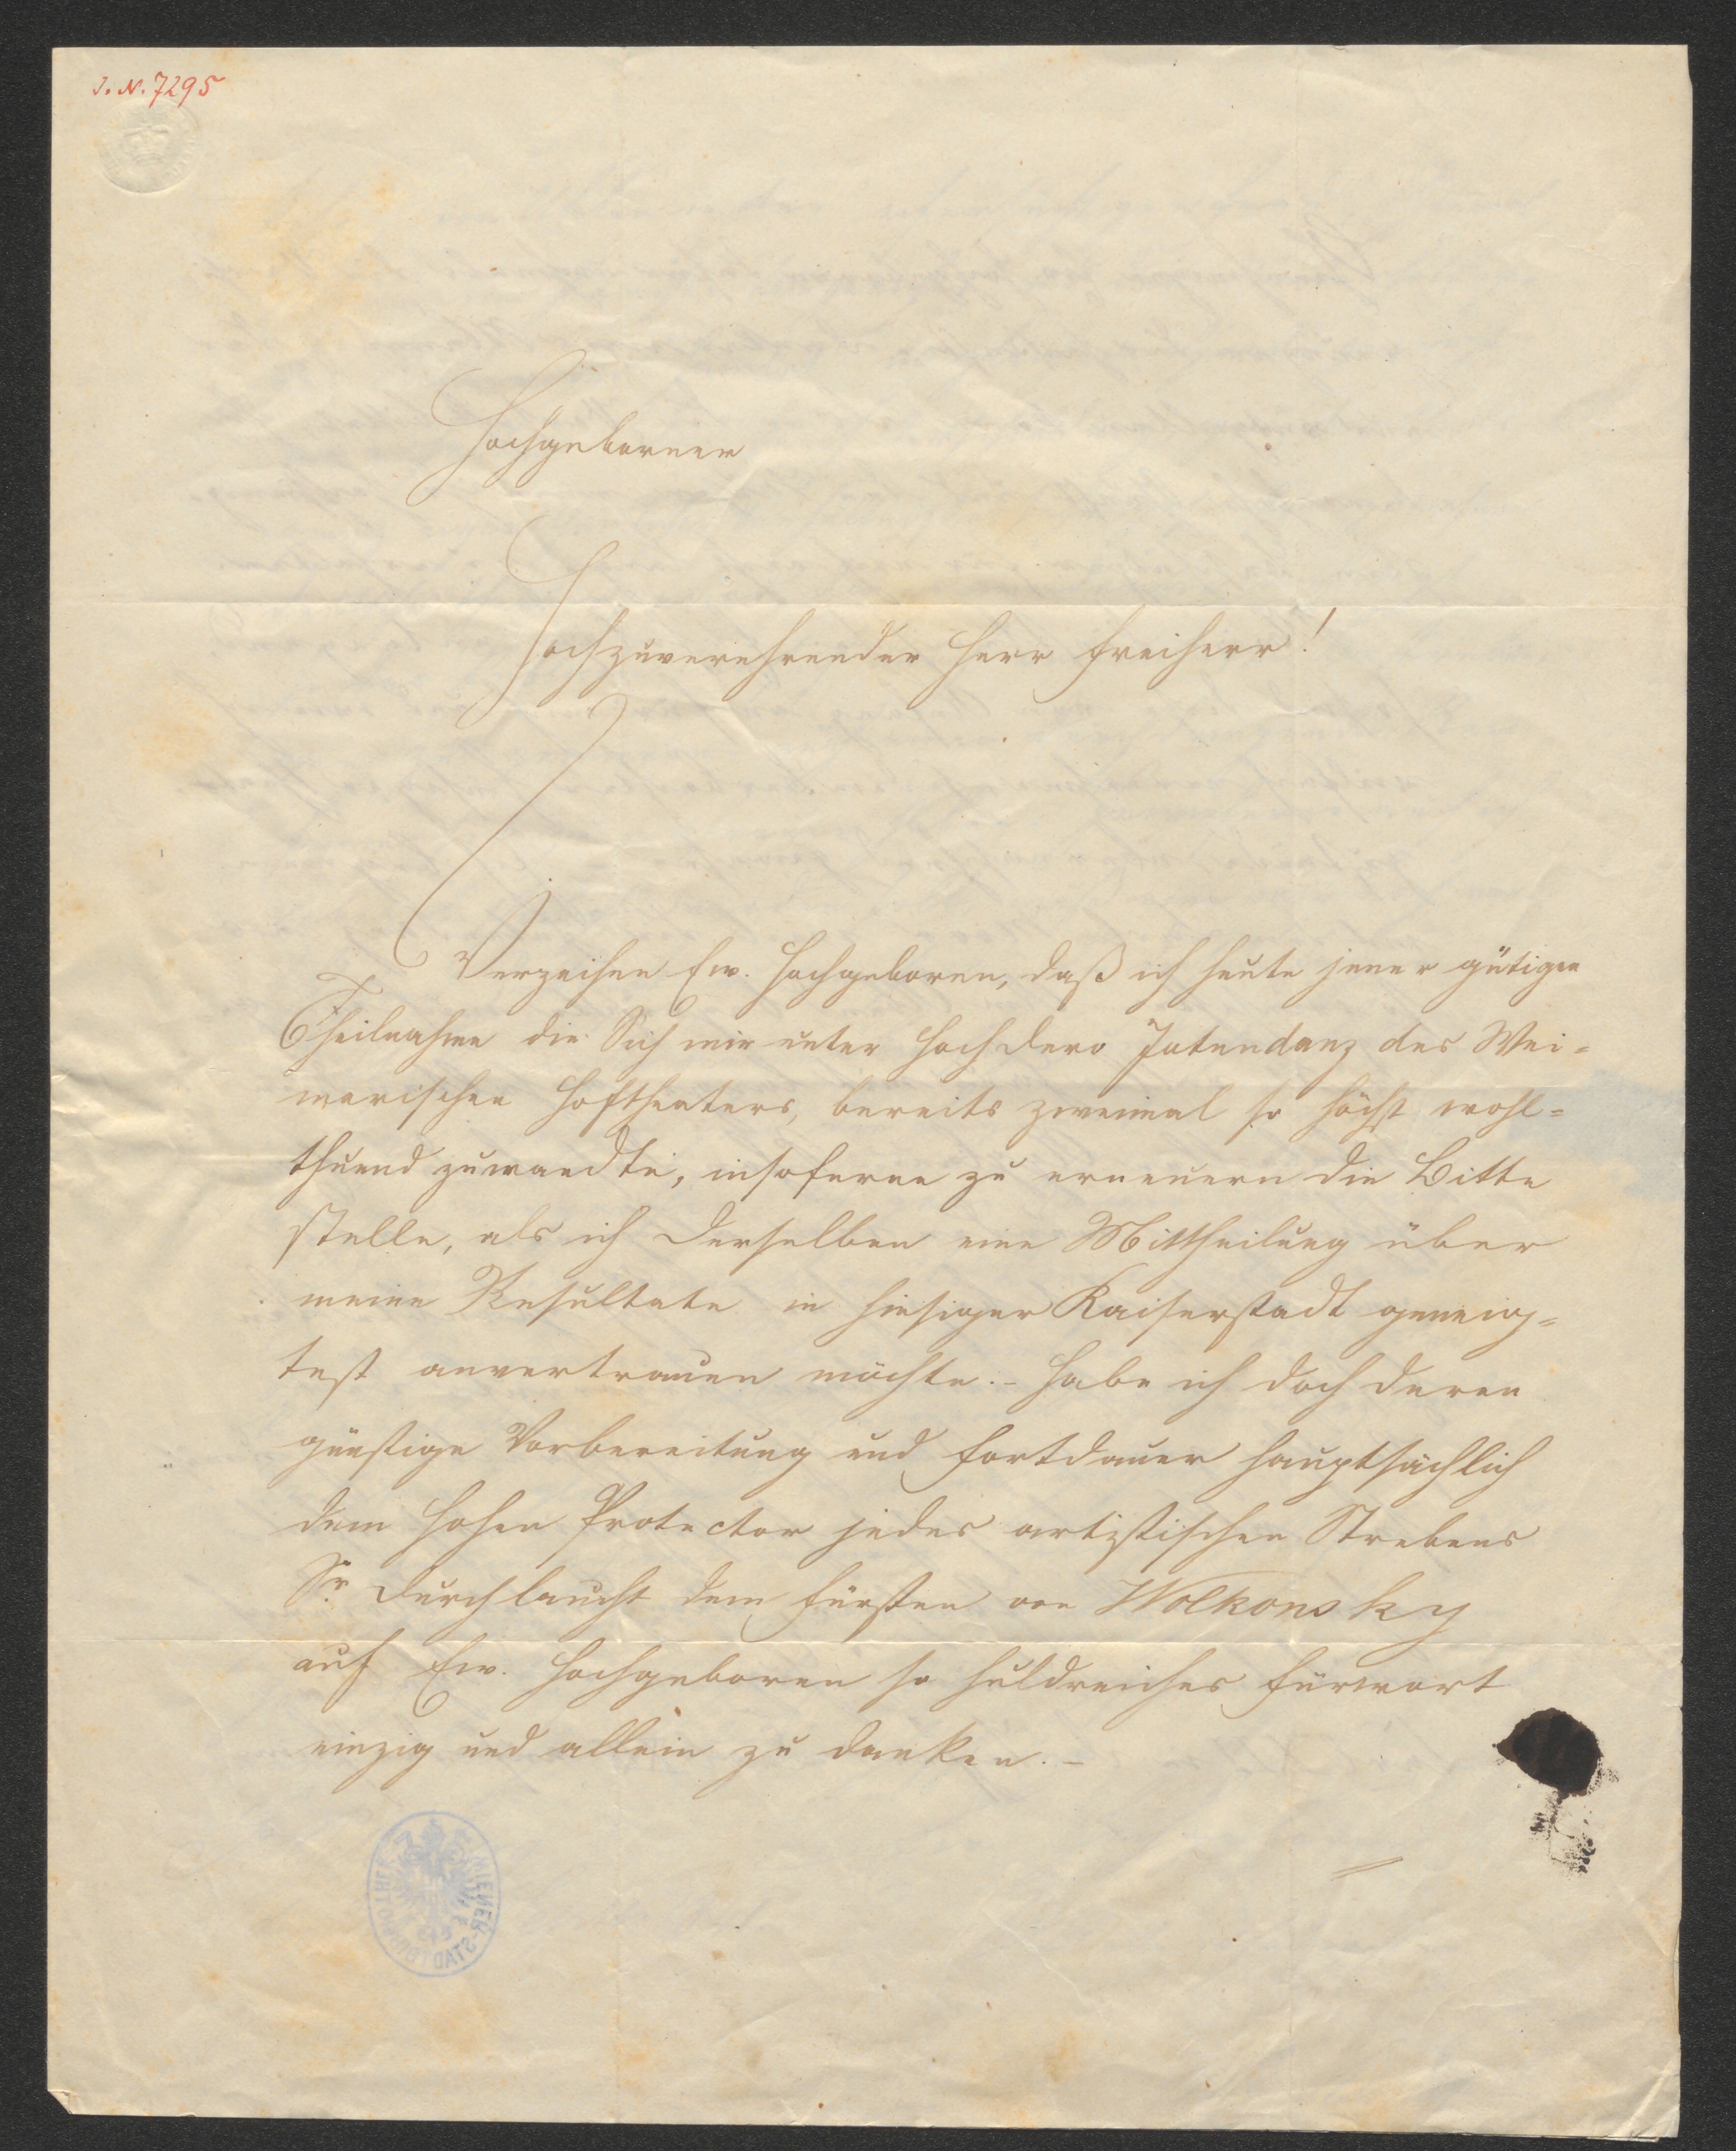 J. N. 7295
Hochgeborner
Hochzuverehrender Herr Freiherr!
Verzeihen Ew. Hochgeboren, daß ich heute jener gütigen
Theilnahme die Sich mir unter Hochdero Intendanz des Wei-
marischen Hoftheaters, bereits zweimal so höchst wohl-
thuend zuwandte, insoferne zu erneuern die Bitte
stelle, als ich derselben eine Mittheilung über
meine Resultate in hiesiger Kaiserstadt geneig-
test anvertrauen möchte. - Habe ich doch deren
günstige Vorbereitung und Fortdauer hauptsächlich
dem hohen Protector jedes artistischen Strebens
Sr Durchlaucht dem Fürsten von Wolkonsky
auf Ew. Hochgeboren so huldreiches Fürwort
einzig und allein zu danken. -